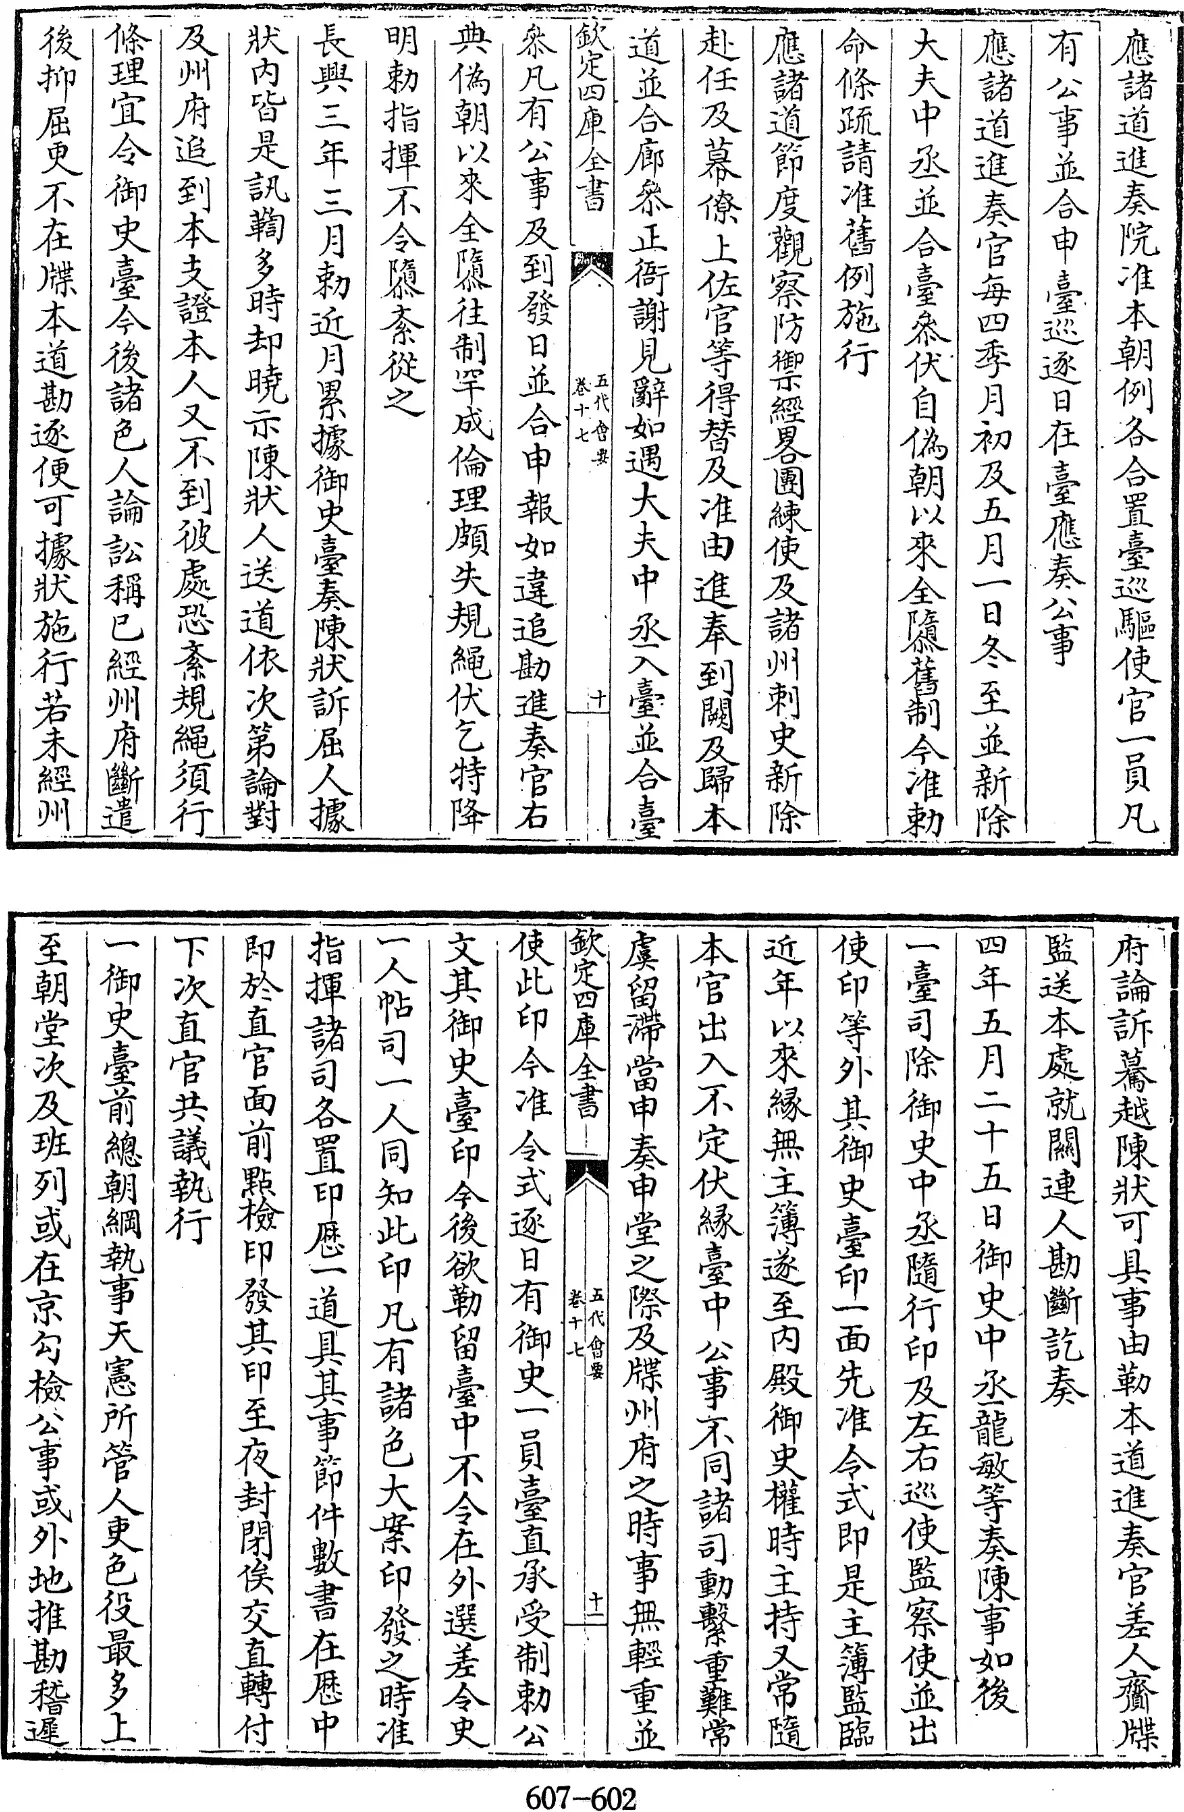 應諸道進奏院准本朝例各合置臺巡驅使官一員凡
有公事並合申臺巡逐日在臺應奏公事
應諸道進奏官每四季月初及五月一日冬至並新除
大夫中丞並合臺叅伏自偽朝以來全隳舊制今准勅
命條疏請准舊例施行
應諸道節度觀察防禦經畧團練使及諸州刺史新除
赴任及幕僚上佐官等得替及准由進奉到闕及歸本
道並合廊叅正衙謝見辭如遇大夫中丞入臺並合臺
欽定四庫全書
五代會要
卷十七
十
叅凡有公事及到發日並合申報如違追勘進奏官右
典偽朝以來全隳往制罕成倫理頗失規繩伏乞特降
明勅指揮不令隳紊從之
長興三年三月勅近月累據御史臺奏陳狀訴屈人據
狀內皆是訊鞫多時却曉示陳狀人送道依次第論對
及州府追到本支證本人又不到彼處恐紊規繩須行
條理宜令御史臺今後諸色人論訟稱已經州府斷遣
後抑屈更不在牒本道勘逐便可據狀施行若未經州
府論訴驀越陳狀可具事由勒本道進奏官差人齎牒
監送本處就關連人勘斷訖奏
四年五月二十五日御史中丞龍敏等奏陳事如後
一臺司除御史中丞隨行印及左右巡使監察使並出
使印等外其御史臺印一面先准令式即是主簿監臨
近年以來緣無主簿遂至内殿御史權時主持又常隨
本官出入不定伏緣臺中公事不同諸司動繫重難常
虞留滯當申奏申堂之際及牒州府之時事無輕重並
欽定四庫全書
五代會要
卷十七
十一
使此印今准令式逐日有御史一員臺直承受制勅公
文其御史臺印今後欲勒留臺中不令在外選差令史
一人帖司一人同知此印凡有諸色大案印發之時准
指揮諸司各置印歷一道具其事節件數書在歷中
即於直官面前點檢印發其印至夜封閉俟交直轉付
下次直官共議執行
一御史臺前總朝綱執事天憲所管人吏色役最多上
至朝堂次及班列或在京勾檢公事或外地推勘稽遲
607-602